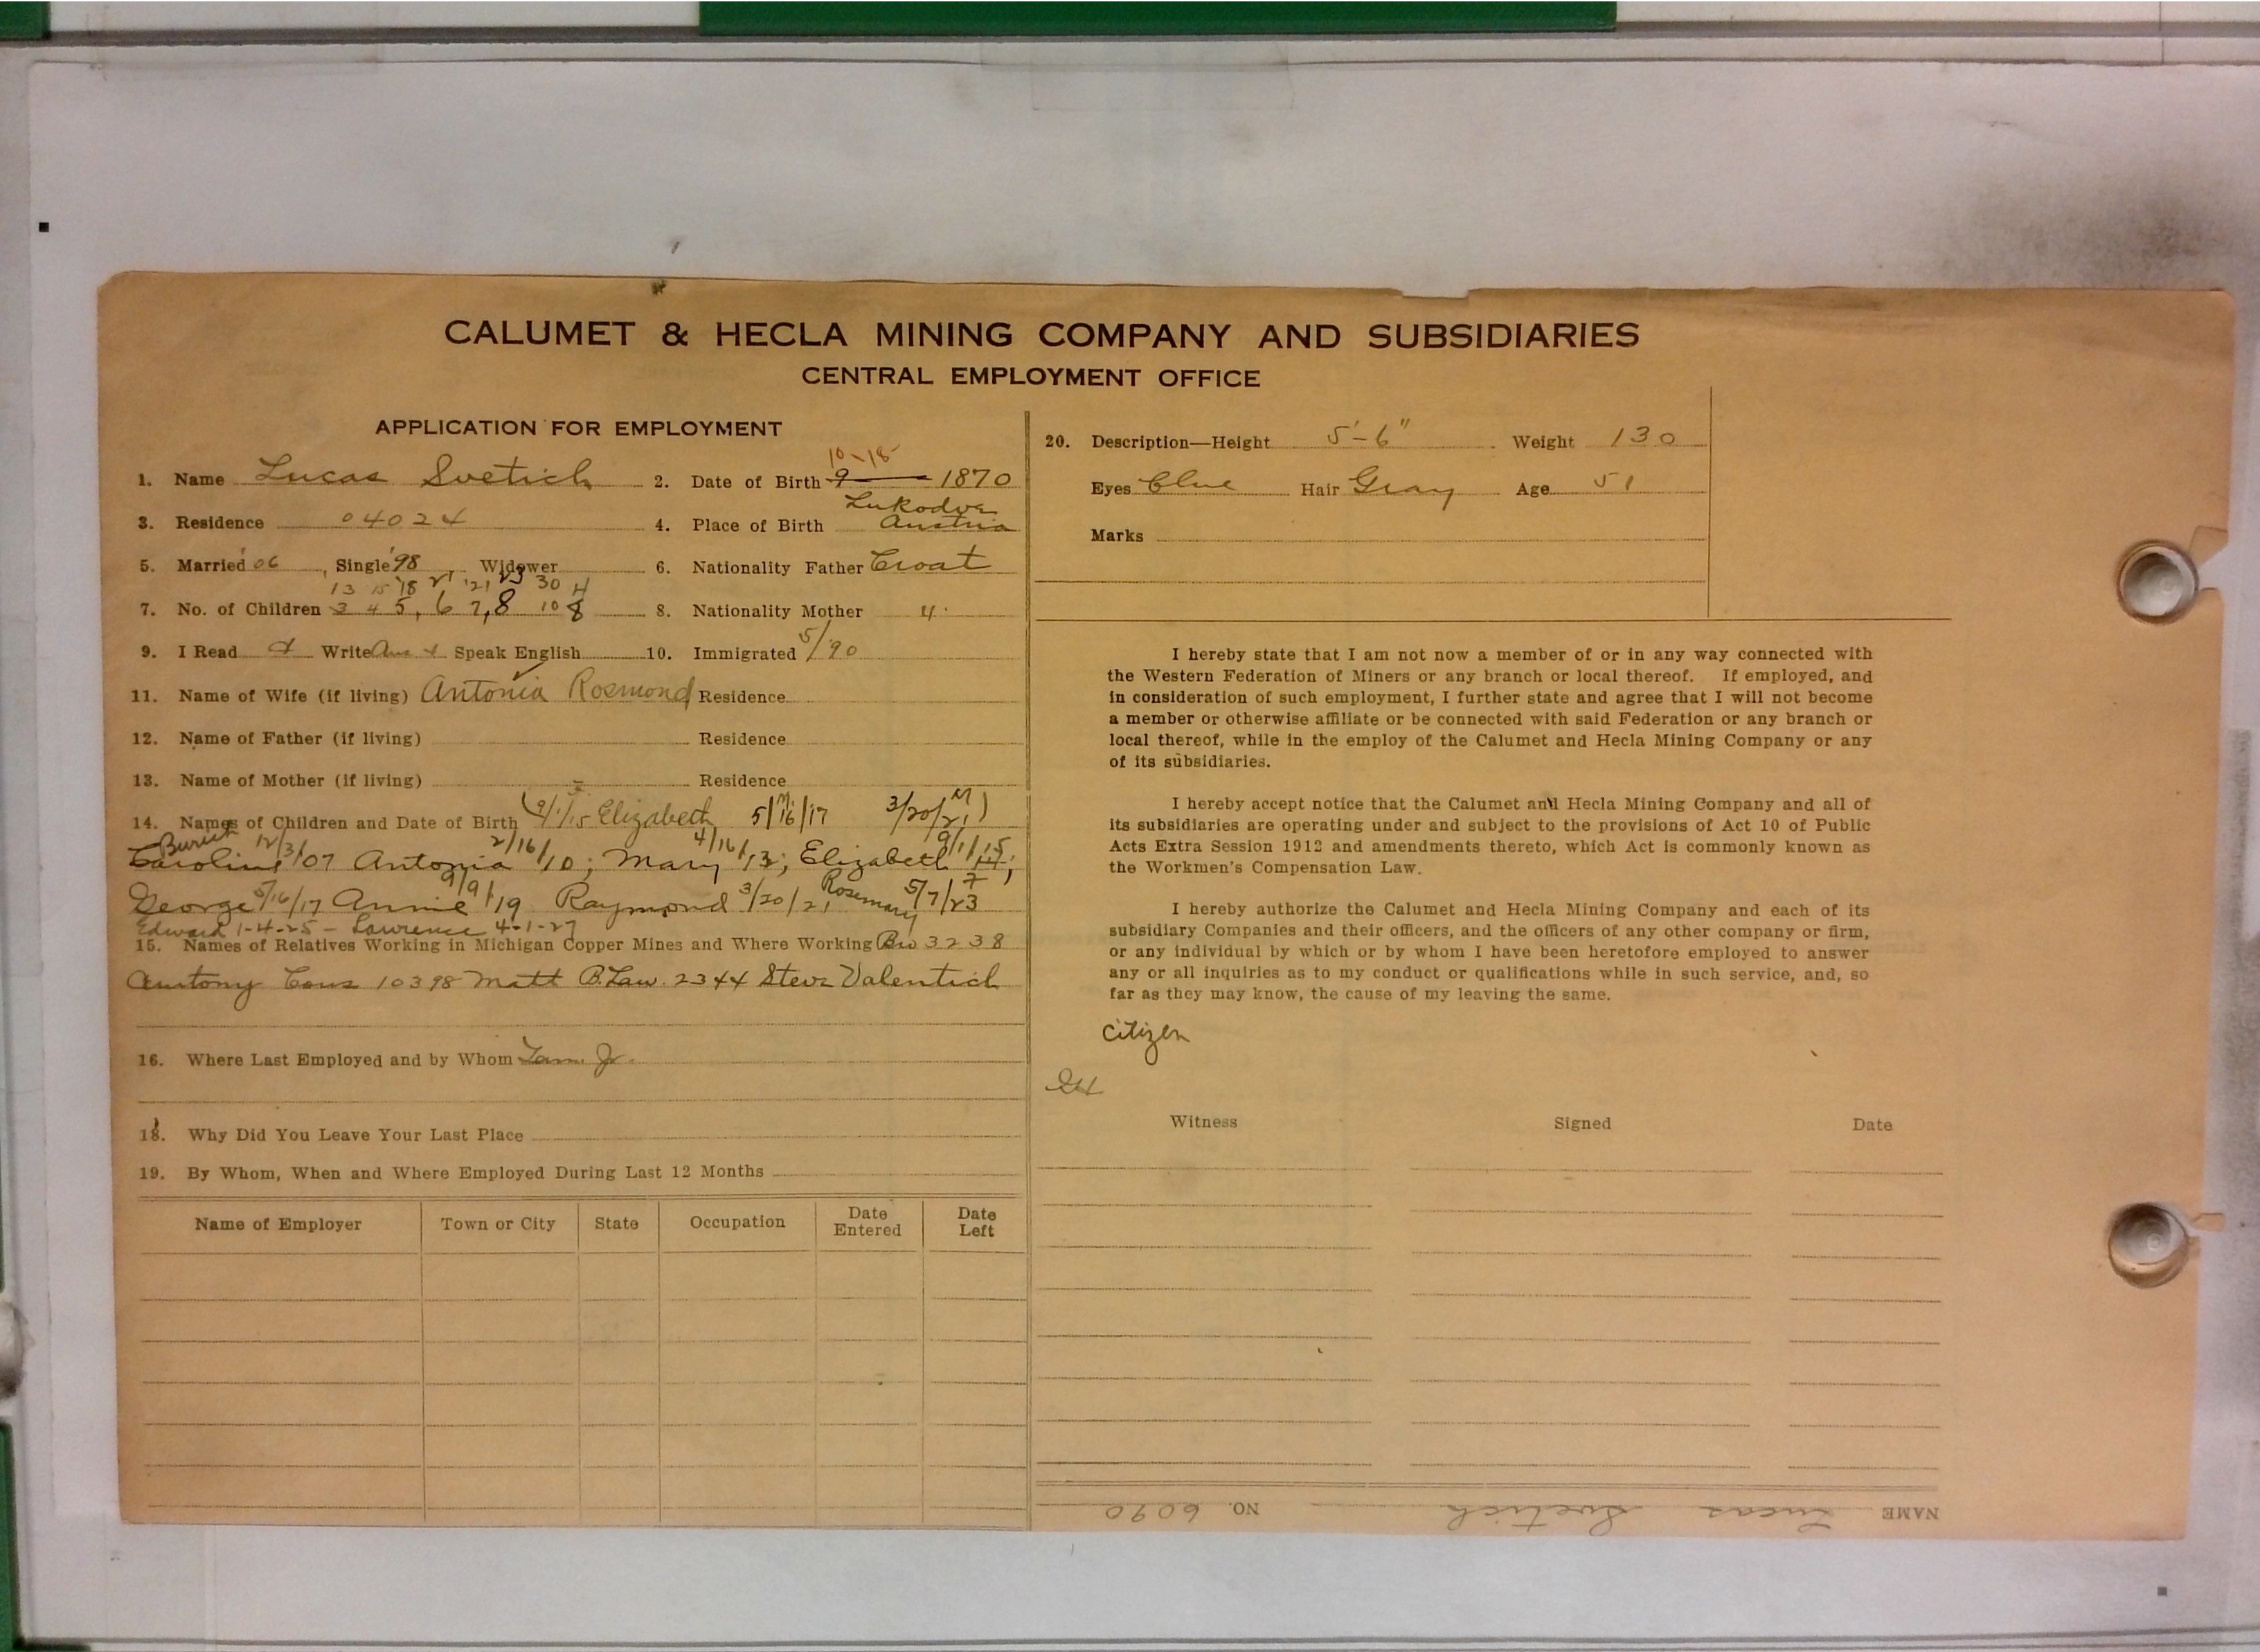 CALUMET & HECLA MINING COMPANY AND SUBSIDIARIES
CENTRAL EMPLOYMENT OFFICE
APPLICATION FOR EMPLOYMENT
10-18
1. Name Lucas Svetich 2. Date of Birth 9 1870
3. Residence 04024 4. Place of Birth Lukodva Austria
5. Married '06, Single '98, Widower 6. Nationality Father Croat
13 15 '18 21 '21 23 30 H
7. No. of Children 3 4 5, 6 7, 8 10 8 8. Nationality Mother "
9. I Read & Write Speak English 10. Immigrated 5/90
11. Name of Wife (if living) Antonia Rosmond Residence
12. Name of Father (if living) Residence
13. Name of Mother (if living) Residence
14. Names of Children and Date of Birth (9/1/15 Elizabeth 5/16/17 3/20/21)
Caroline 12/3/07 Antonia 2/16/10; Mary 4/16/13; Elizabeth 9/1/15;
George 5/16/17 Annie 9/9/19 Raymond 3/20/21 Rosemary 5/7/23
Edward 1-4-25 - Lawrence 4-1-27
15. Names of Relatives Working in Michigan Copper Mines and Where Working Bro 3238
Antony Cous 10398 Matt B. Law. 2344 Steve Valentich
16. Where Last Employed and by Whom Tam. Jr.
18. Why Did You Leave Your Last Place
19. By Whom, When and Where Employed During Last 12 Months
Name of Employer Town or City State Occupation Date Entered Date Left
20. Description—Height 5'-6" Weight 130
Eyes Blue Hair Gray Age 51
Marks
I hereby state that I am not now a member of or in any way connected with
the Western Federation of Miners or any branch or local thereof. If employed, and
in consideration of such employment, I further state and agree that I will not become
a member or otherwise affiliate or be connected with said Federation or any branch or
local thereof, while in the employ of the Calumet and Hecla Mining Company or any
of its subsidiaries.
I hereby accept notice that the Calumet and Hecla Mining Company and all of
its subsidiaries are operating under and subject to the provisions of Act 10 of Public
Acts Extra Session 1912 and amendments thereto, which Act is commonly known as
the Workmen's Compensation Law.
I hereby authorize the Calumet and Hecla Mining Company and each of its
subsidiary Companies and their officers, and the officers of any other company or firm,
or any individual by which or by whom I have been heretofore employed to answer
any or all inquiries as to my conduct or qualifications while in such service, and, so
far as they may know, the cause of my leaving the same.
Citizen
Witness Signed Date
NAME Lucas Svetich NO. 6090